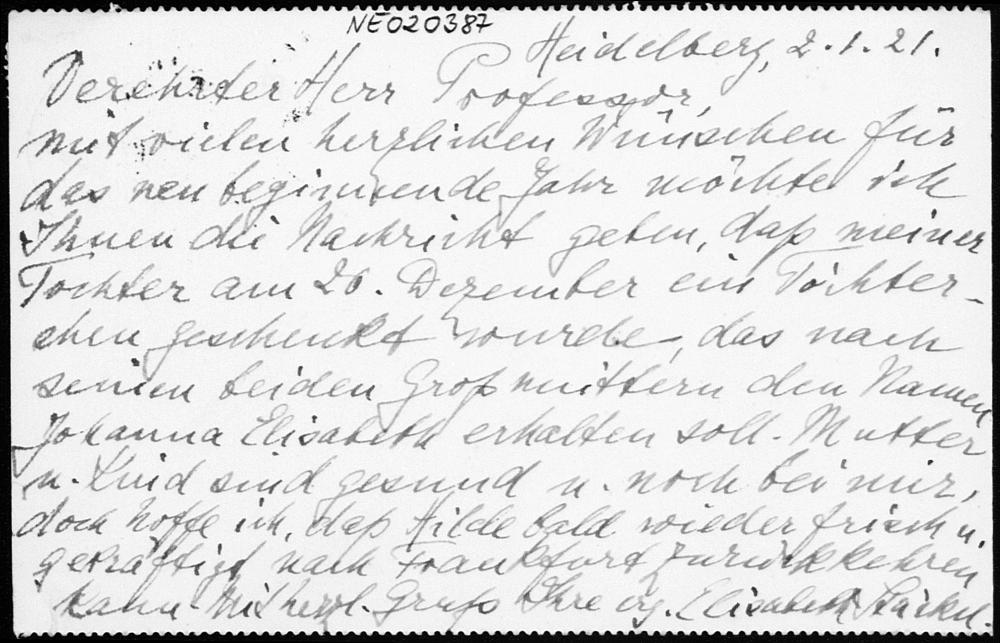 NE020387
Heidelberg, 2.1.21.
Verehrter Herr Professor,
mit vielen herzlichen Wünschen für
das neu beginnende Jahr möchte ich
Ihnen die Nachricht geben, daß meiner
Tochter am 20. Dezember ein Töchter-
chen geschenkt wurde, das nach
seinen beiden Großmüttern den Namen
Johanna Elisabeth erhalten soll. Mutter
u. Kind sind gesund u. noch bei mir,
doch hoffe ich, daß Hilde bald wieder frisch u.
gekräftigt nach Frankfurt zurückkehren
kann. Mit herzl. Gruß Ihre erg. Elisabeth Stäckel.